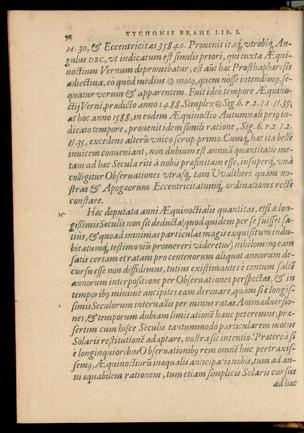 38
TYCHONIS BRAHE LIB. I.
21. 30, & Eccentricitas 35840. Provenit itaq; utrobiq; An-
gulus DBC, ut indicatum est similis priori, qui juxta Æqui-
noctium Vernum depromebatur, est autem hæc Prosthaphæresis
adjectiva, eò quod medius ☉ motu, quem nosse intendimus, se-
quatur verum & apparentem. Fuit ideo tempore Æquino-
ctij Verni, prædicto anno 1488. Simplex ☉ Sig. 6. P. 2. I. I. II. 35,
at hoc anno 1588, in eodem Æquinoctio Autumnali prius in-
dicato tempore, provenit idem simili ratione, Sig. 6. P. 2. I. 2.
II. 35, excedens alterum unico scrup. primo. Cumq; hæc ita belle
invicem conveniant, non dubium est annuâ quantitatē me-
tam ad hæc Secula ritè à nobis præfinitam esse, insuperq; unà
colligitur Observationes utrasq; tam Vvaltheri quàm no-
stras & Apogæorum Eccentricitatumq; ordinationes rectè
constare.
Hâc deputatâ anni Æquinoctialis quantitas, etsi à lon-
gissimis Seculis non sit deducta (quod quidem per se fuisset sa-
tius, & quoad minimas particulas magis exquisitum indu-
bitatumq; testimoniū promereri videretur) nihilominq; eam
satis certam et ratam pro centenorum aliquot annorum de-
cursu esse non diffidimus, tutius existimantes è centum saltē
annorum interpositione per Observationes perspectas, & in
temporibq; minùs ancipites eam derivare, quàm siè longis-
simis Seculorum intervallis per minus ratas Animadversio-
nes, & temporum dubiam limitationē hanc peteremus; præ-
sertim cum hisce Seculis tantummodo particularem motus
Solaris restitutionē adaptare, nostra sit intentio. Præterea si
è longinquioribus Observationibq; rem omnē huc pertraxis-
semq; Æquinoctiorū inæqualis anticipatio nobis, tum ad an-
ni æquabilem rationem, tum etiam simplicis Solaris cursus
ad hæc